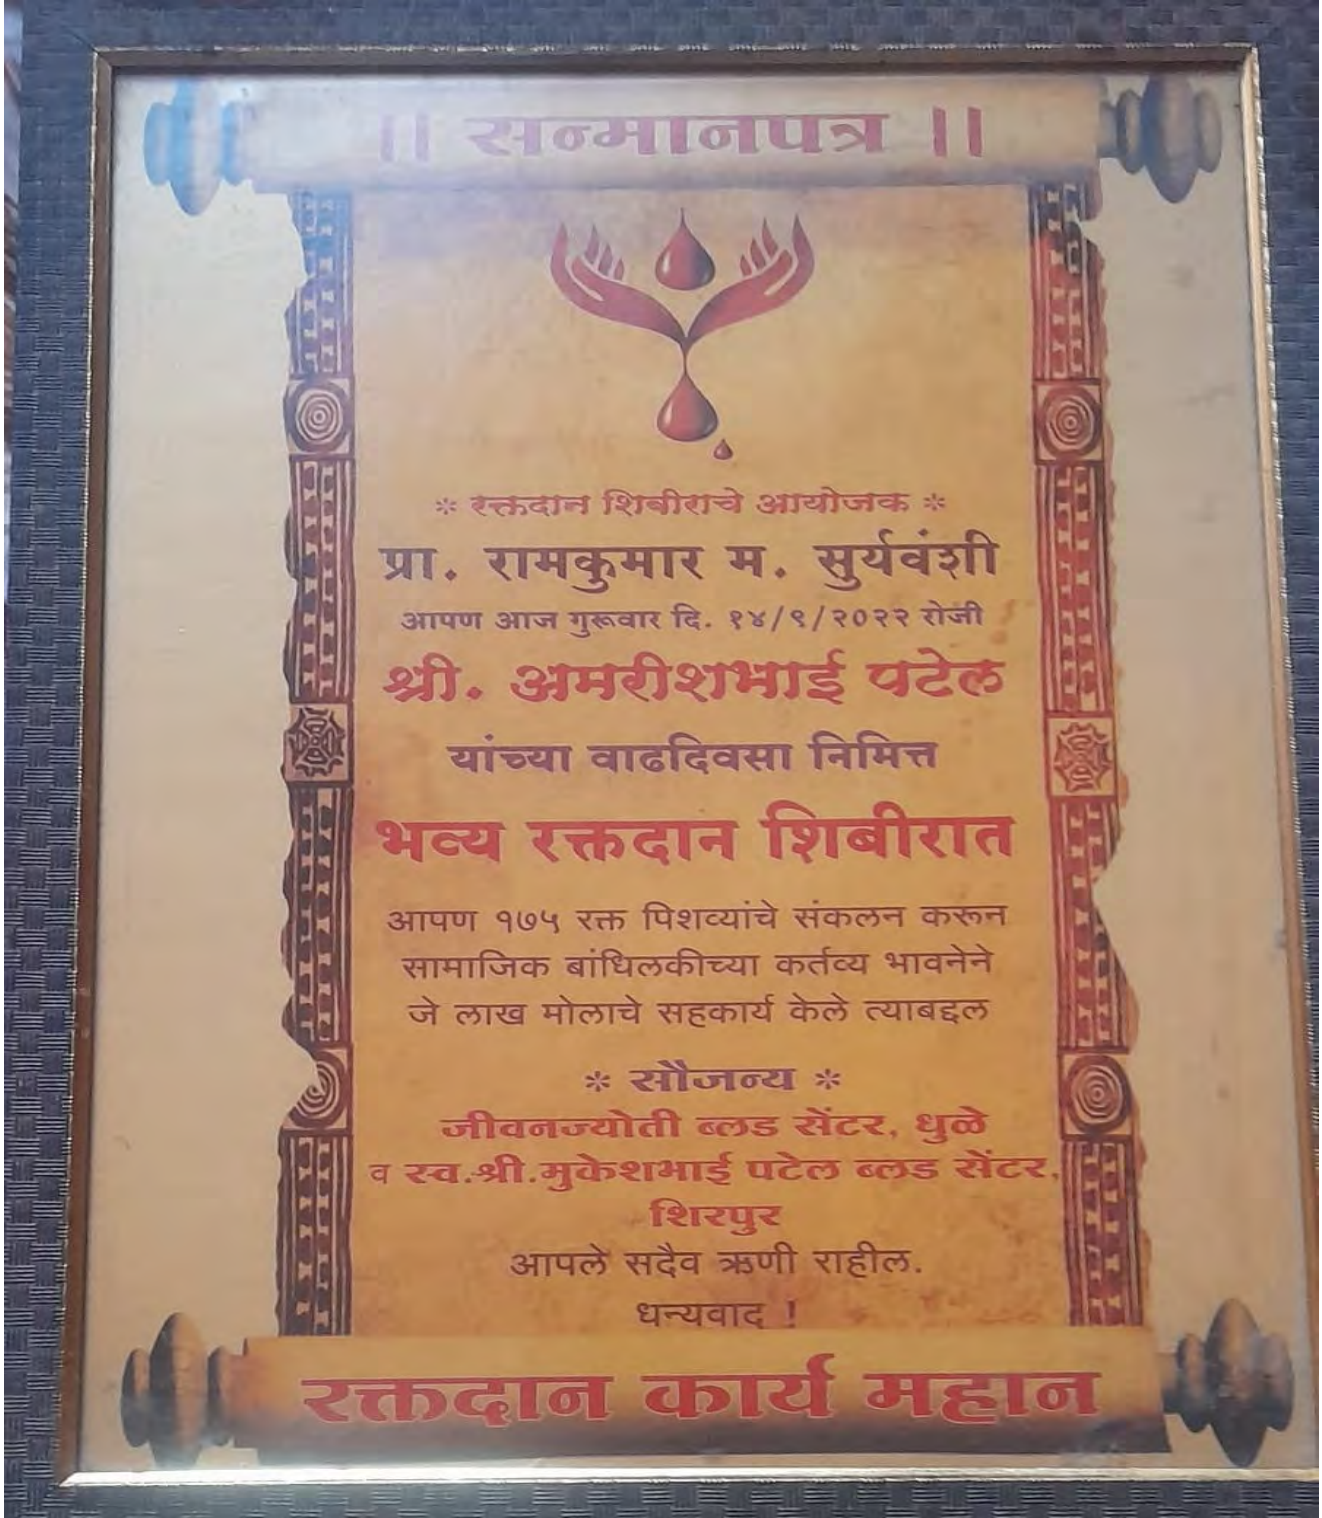 || सन्मानपत्र ||
* रक्तदान शिबीराचे आयोजक *
प्रा. रामकुमार म. सुर्यवंशी
आपण आज गुरूवार दि. १४/९/२०२२ रोजी
श्री. अमरीशभाई पटेल
यांच्या वाढदिवसा निमित्त
भव्य रक्तदान शिबीरात
आपण १७५ रक्त पिशव्यांचे संकलन करून
सामाजिक बांधिलकीच्या कर्तव्य भावनेने
जे लाख मोलाचे सहकार्य केले त्याबद्दल
* सौजन्य *
जीवनज्योती ब्लड सेंटर, धुळे
व स्व.श्री.मुकेशभाई पटेल ब्लड सेंटर,
शिरपुर
आपले सदैव ऋणी राहील.
धन्यवाद !
रक्तदान कार्य महान